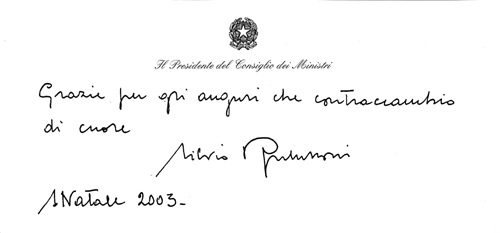 Il Presidente del Consiglio dei Ministri
Grazie per gli auguri che contraccambio
di cuore
Silvio Berlusconi
Natale 2003-